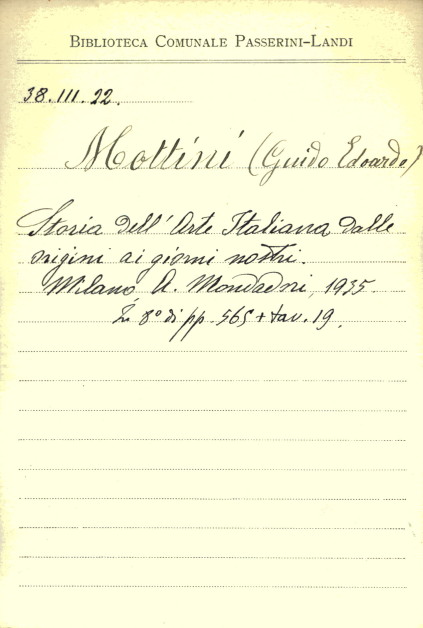 BIBLIOTECA COMUNALE PASSERINI-LANDI
38.III.22.
Mottini (Guido Edoardo)
Storia dell'Arte Italiana dalle
origini ai giorni nostri.
Milano A. Mondadori, 1935.
In 8° di pp. 565 + tav. 19.